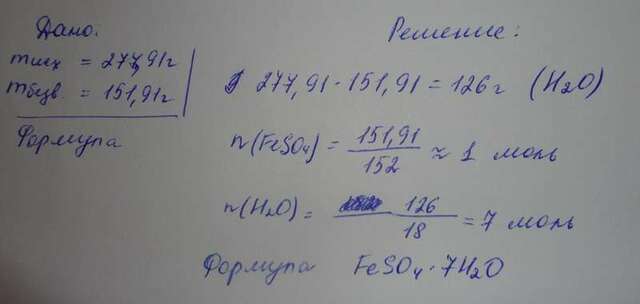 Дано:
mисх = 277,91г
mбезв. = 151,91г
Формула
Решение:
277,91 - 151,91 = 126г (H₂O)
n(FeSO₄) = 151,91 / 152 ≈ 1 моль
n(H₂O) = 126 / 18 = 7 моль
Формула FeSO₄·7H₂O